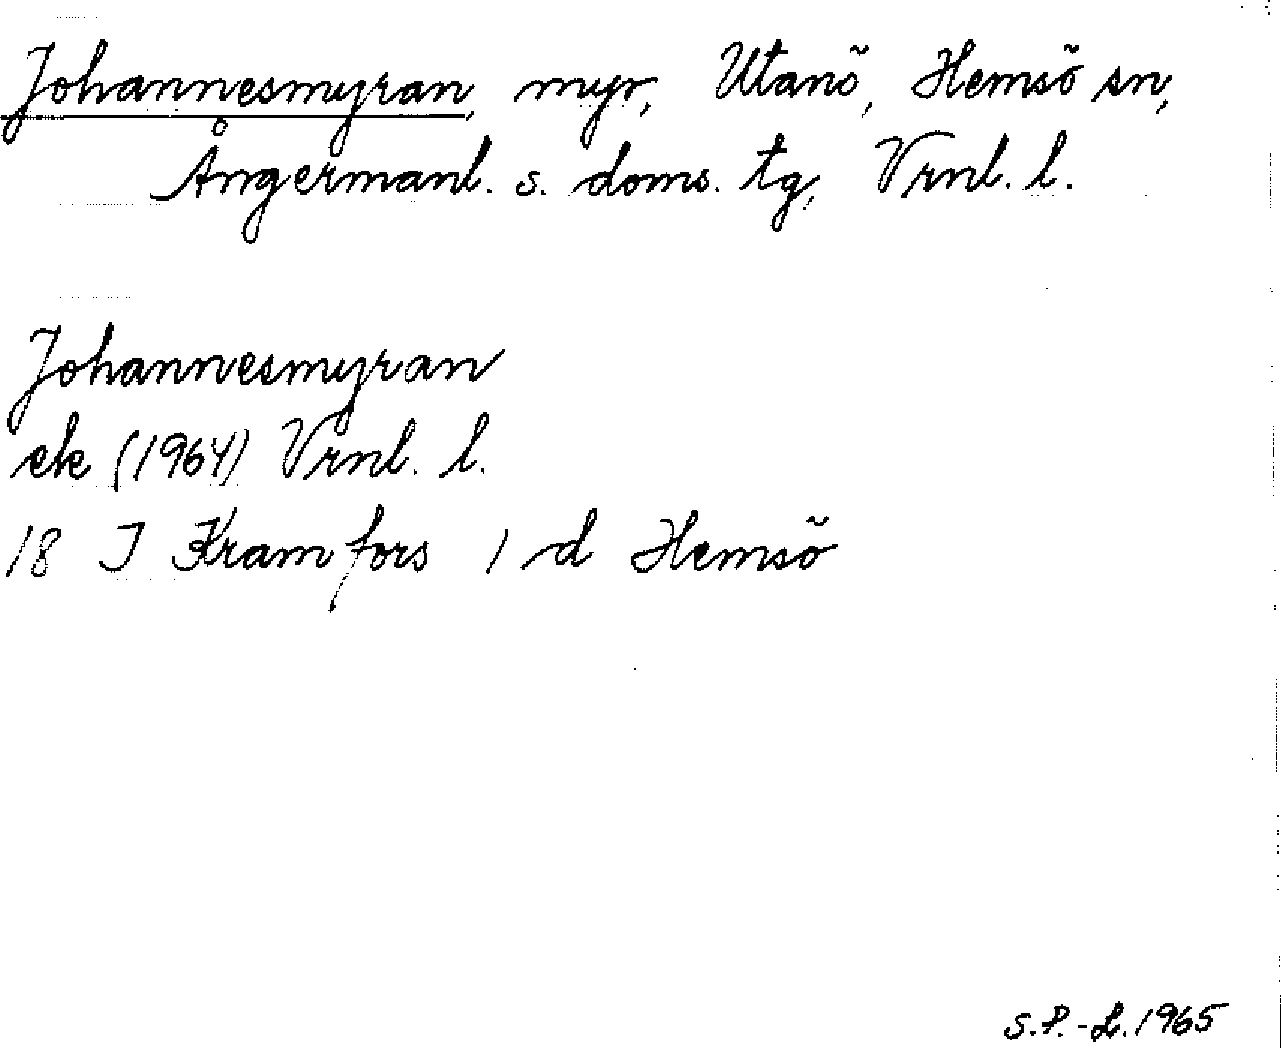 Johannesmyran, myr, Utanö, Hemsö sn,
Ångermanl. s. doms. tg, Vrnl. l.
Johannesmyran
ek (1964) Vrnl. l.
18 I Kramfors 1 d Hemsö
S.P.-L. 1965